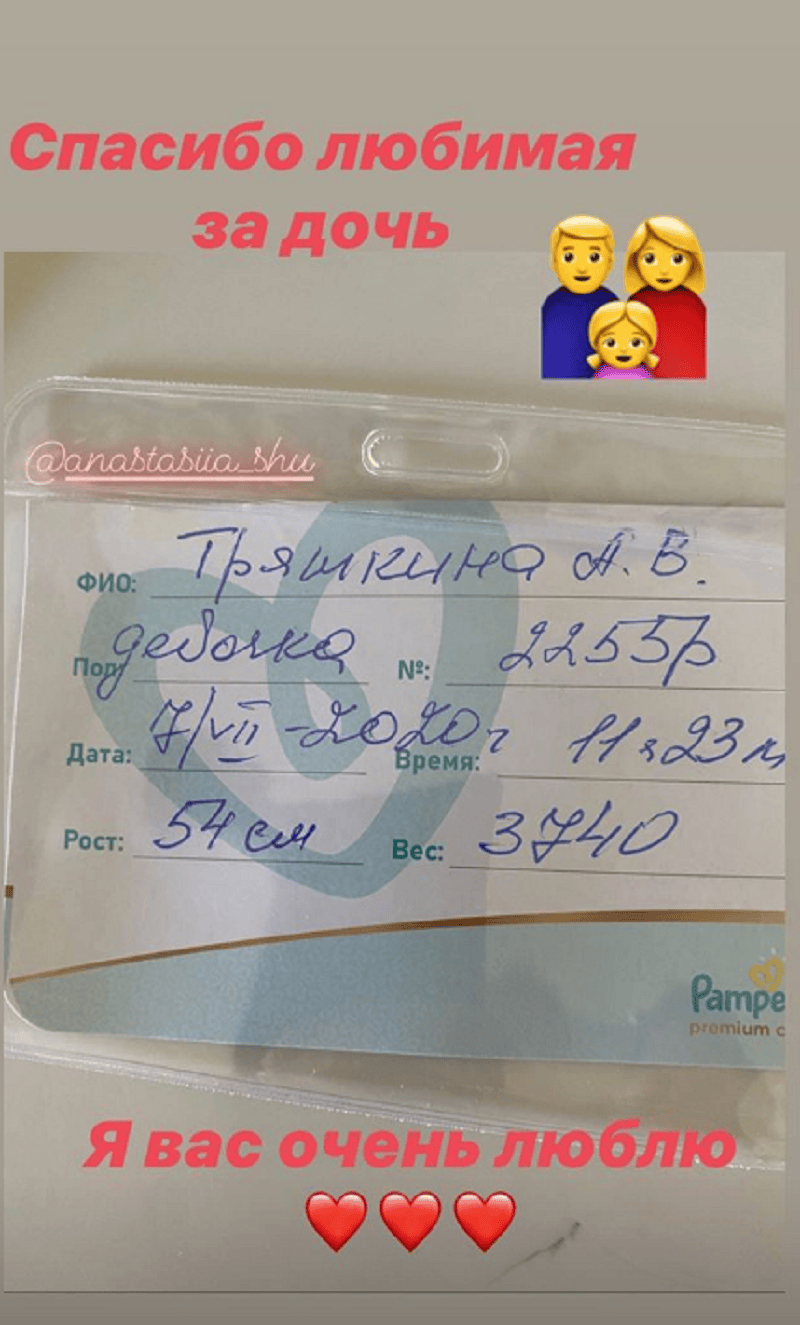 Спасибо любимая
за дочь
@anastasiia_shu
ФИО: Тряшкина А. В.
Пол: девочка №: 2255р
Дата: 7/VII-2020г Время: 11ч 23м
Рост: 54 см Вес: 3740
Pampe
premium c
Я вас очень люблю